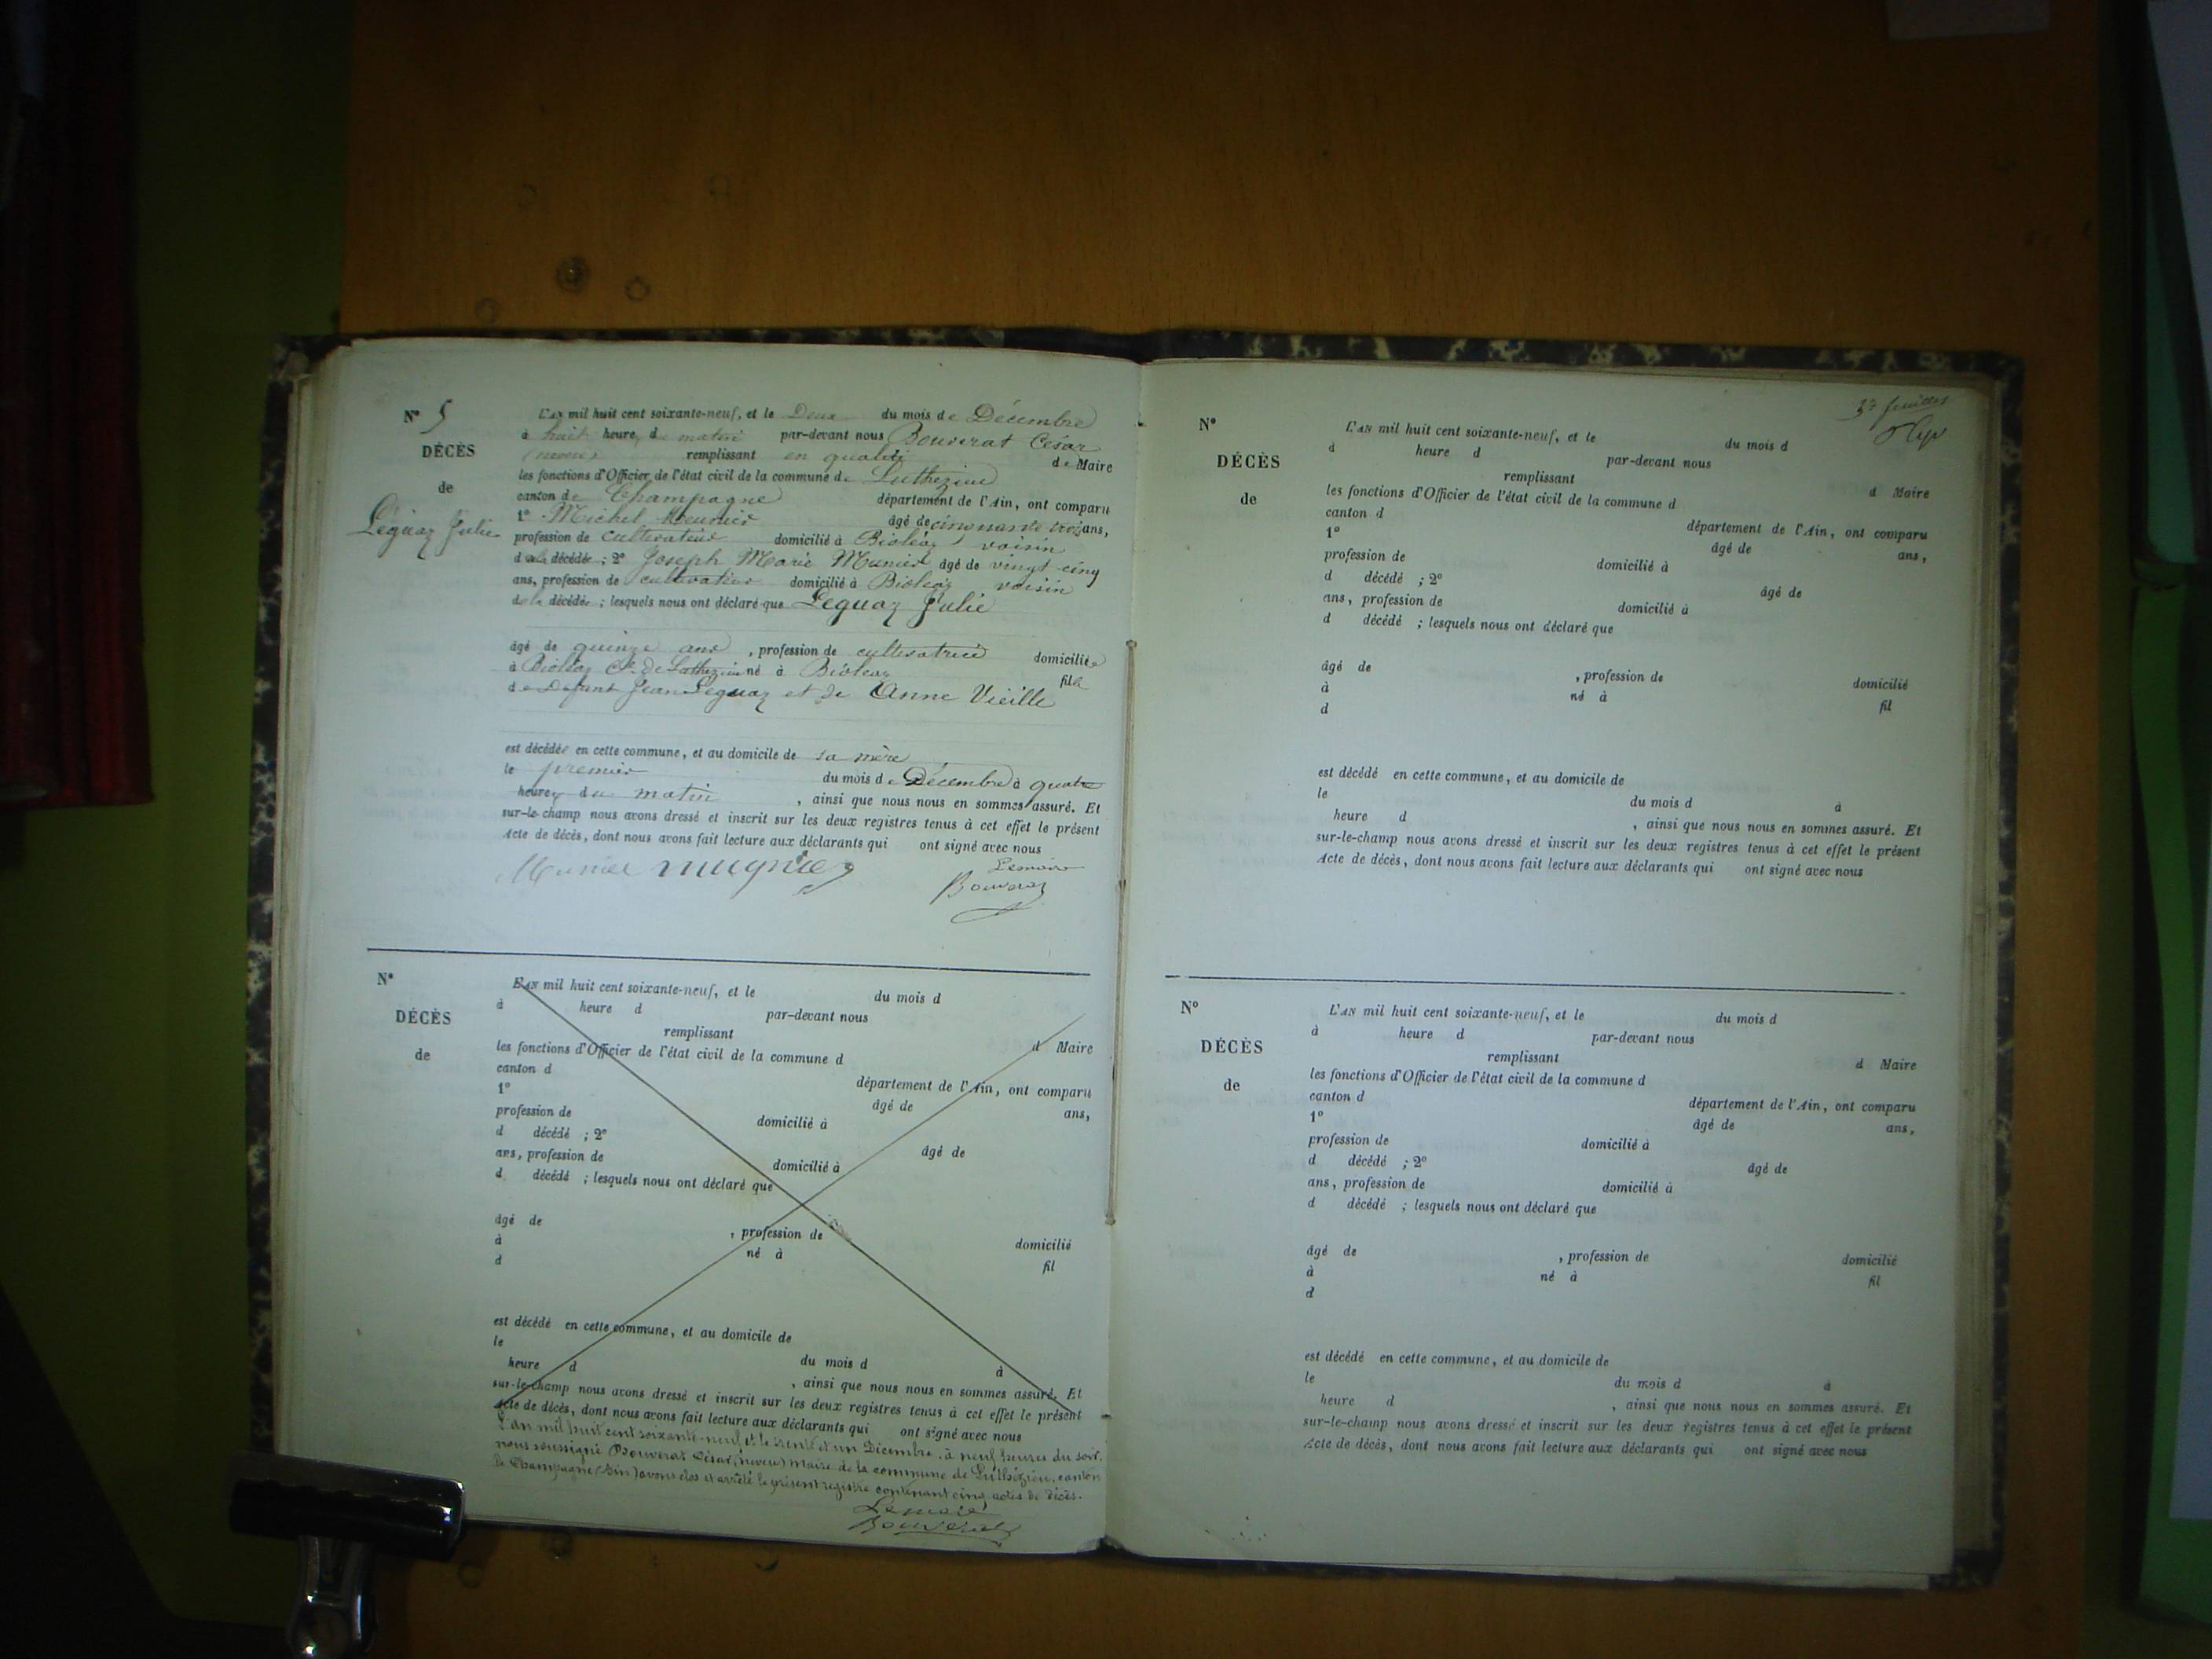 N° 5
DÉCÈS
de
Léguaz Julie
L'AN mil huit cent soixante-neuf, et le Deux du mois de Décembre
à huit heures du matin par-devant nous Bouverat César
(neveu) remplissant en qualité de Maire
les fonctions d'Officier de l'état civil de la commune de Luthézieu
canton de Champagne département de l'Ain, ont comparu
1° Michel Meunier âgé de cinquante trois ans,
profession de cultivateur domicilié à Bioléaz voisin
de la décédée ; 2° Joseph Marie Munier âgé de vingt cinq
ans, profession de cultivateur domicilié à Bioléaz voisin
de la décédée ; lesquels nous ont déclaré que Léguaz Julie
âgé de quinze ans , profession de cultivatrice domiciliée
à Bioléaz Cne de Luthézieu né à Bioléaz fille
de Défunt Jean Léguaz et de Anne Vieille
est décédée en cette commune, et au domicile de sa mère
le premier du mois de Décembre à quatre
heures du matin , ainsi que nous nous en sommes assuré. Et
sur-le-champ nous avons dressé et inscrit sur les deux registres tenus à cet effet le présent
Acte de décès, dont nous avons fait lecture aux déclarants qui ont signé avec nous
Munier mugnier Lemaire
Bouverat
N°
DÉCÈS
de
L'AN mil huit cent soixante-neuf, et le du mois d
à heure d par-devant nous
remplissant d Maire
les fonctions d'Officier de l'état civil de la commune d
canton d département de l'Ain, ont comparu
1° âgé de ans,
profession de domicilié à
d décédé ; 2° âgé de
ans, profession de domicilié à
d décédé ; lesquels nous ont déclaré que
âgé de , profession de domicilié
à né à fil
d
est décédé en cette commune, et au domicile de
le du mois d à
heure d , ainsi que nous nous en sommes assuré. Et
sur-le-champ nous avons dressé et inscrit sur les deux registres tenus à cet effet le présent
Acte de décès, dont nous avons fait lecture aux déclarants qui ont signé avec nous
L'an mil huit cent soixante-neuf et le trente et un Décembre, à neuf heures du soir,
nous soussigné Bouverat César, (neveu) maire de la commune de Luthézieu, canton
de Champagne (Ain) avons clos et arrêté le présent registre contenant cinq actes de décès.
Lemaire
Bouverat
3e feuillet
N°
DÉCÈS
de
L'AN mil huit cent soixante-neuf, et le du mois d
à heure d par-devant nous
remplissant d Maire
les fonctions d'Officier de l'état civil de la commune d
canton d département de l'Ain, ont comparu
1° âgé de ans,
profession de domicilié à
d décédé ; 2° âgé de
ans, profession de domicilié à
d décédé ; lesquels nous ont déclaré que
âgé de , profession de domicilié
à né à fil
d
est décédé en cette commune, et au domicile de
le du mois d à
heure d , ainsi que nous nous en sommes assuré. Et
sur-le-champ nous avons dressé et inscrit sur les deux registres tenus à cet effet le présent
Acte de décès, dont nous avons fait lecture aux déclarants qui ont signé avec nous
N°
DÉCÈS
de
L'AN mil huit cent soixante-neuf, et le du mois d
à heure d par-devant nous
remplissant d Maire
les fonctions d'Officier de l'état civil de la commune d
canton d département de l'Ain, ont comparu
1° âgé de ans,
profession de domicilié à
d décédé ; 2° âgé de
ans, profession de domicilié à
d décédé ; lesquels nous ont déclaré que
âgé de , profession de domicilié
à né à fil
d
est décédé en cette commune, et au domicile de
le du mois d à
heure d , ainsi que nous nous en sommes assuré. Et
sur-le-champ nous avons dressé et inscrit sur les deux registres tenus à cet effet le présent
Acte de décès, dont nous avons fait lecture aux déclarants qui ont signé avec nous